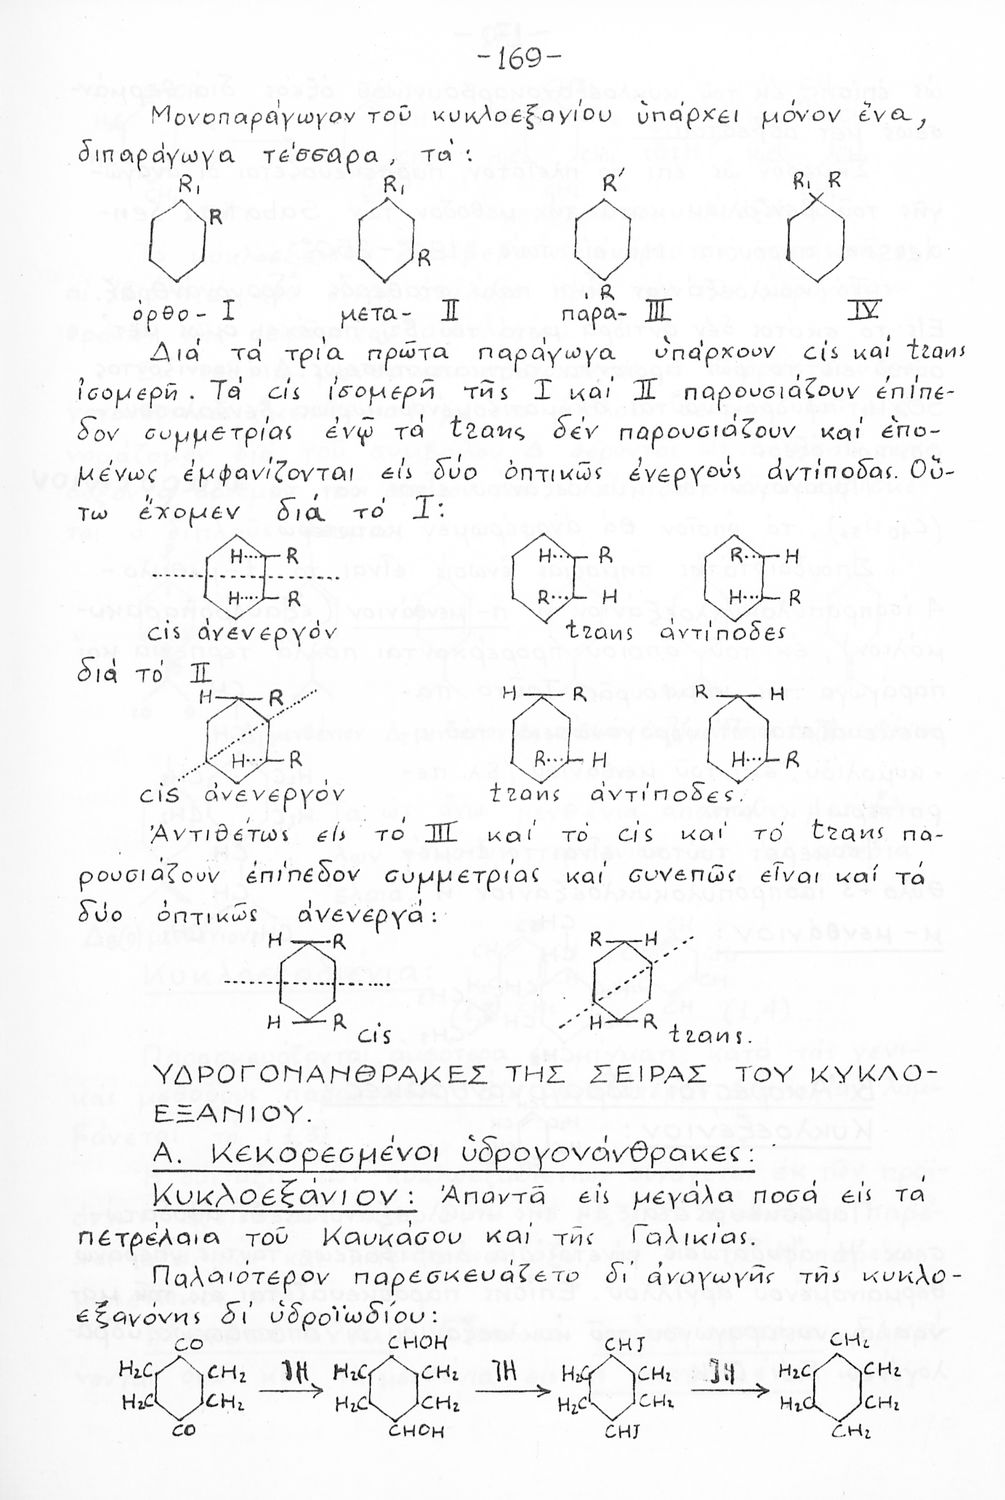 -169-
Μονοπαράγωγον τοῦ κυκλοεξανίου ὑπάρχει μόνον ἕνα,
διπαράγωγα τέσσαρα, τά:
R₁ R₁ R′ R₁ R
R R R
ορθο - I μετα - II παρα - III IV
Διά τά τρία πρῶτα παράγωγα ὑπάρχουν cis καί trans
ἰσομερῆ. Τά cis ἰσομερῆ τῆς I καί II παρουσιάζουν ἐπίπε-
δον συμμετρίας ἐνῷ τά trans δέν παρουσιάζουν καί ἑπο-
μένως ἐμφανίζονται εἰς δύο ὀπτικῶς ἐνεργούς ἀντίποδας. Οὕ-
τω ἔχομεν διά τό I:
H R H R R H
H R R H H R
cis ἀνενεργόν trans ἀντίποδες
διά τό II
H R H R R H
H R R H H R
cis ἀνενεργόν trans ἀντίποδες.
Ἀντιθέτως εἰς τό III καί τό cis καί τό trans πα-
ρουσιάζουν ἐπίπεδον συμμετρίας καί συνεπῶς εἶναι καί τά
δύο ὀπτικῶς ἀνενεργά:
H R R H
H R cis H R trans.
ΥΔΡΟΓΟΝΑΝΘΡΑΚΕΣ ΤΗΣ ΣΕΙΡΑΣ ΤΟΥ ΚΥΚΛΟ-
ΕΞΑΝΙΟΥ.
Α. Κεκορεσμένοι ὑδρογονάνθρακες:
Κυκλοεξάνιον: Ἀπαντᾶ εἰς μεγάλα ποσά εἰς τά
πετρέλαια τοῦ Καυκάσου καί τῆς Γαλικίας.
Παλαιότερον παρεσκευάζετο δι' ἀναγωγῆς τῆς κυκλο-
εξανόνης δι' ὑδροϊωδίου:
CO CHOH CHJ CH₂
H₂C CH₂ JH H₂C CH₂ JH H₂C CH₂ JH H₂C CH₂
H₂C CH₂ H₂C CH₂ H₂C CH₂ H₂C CH₂
CO CHOH CHJ CH₂